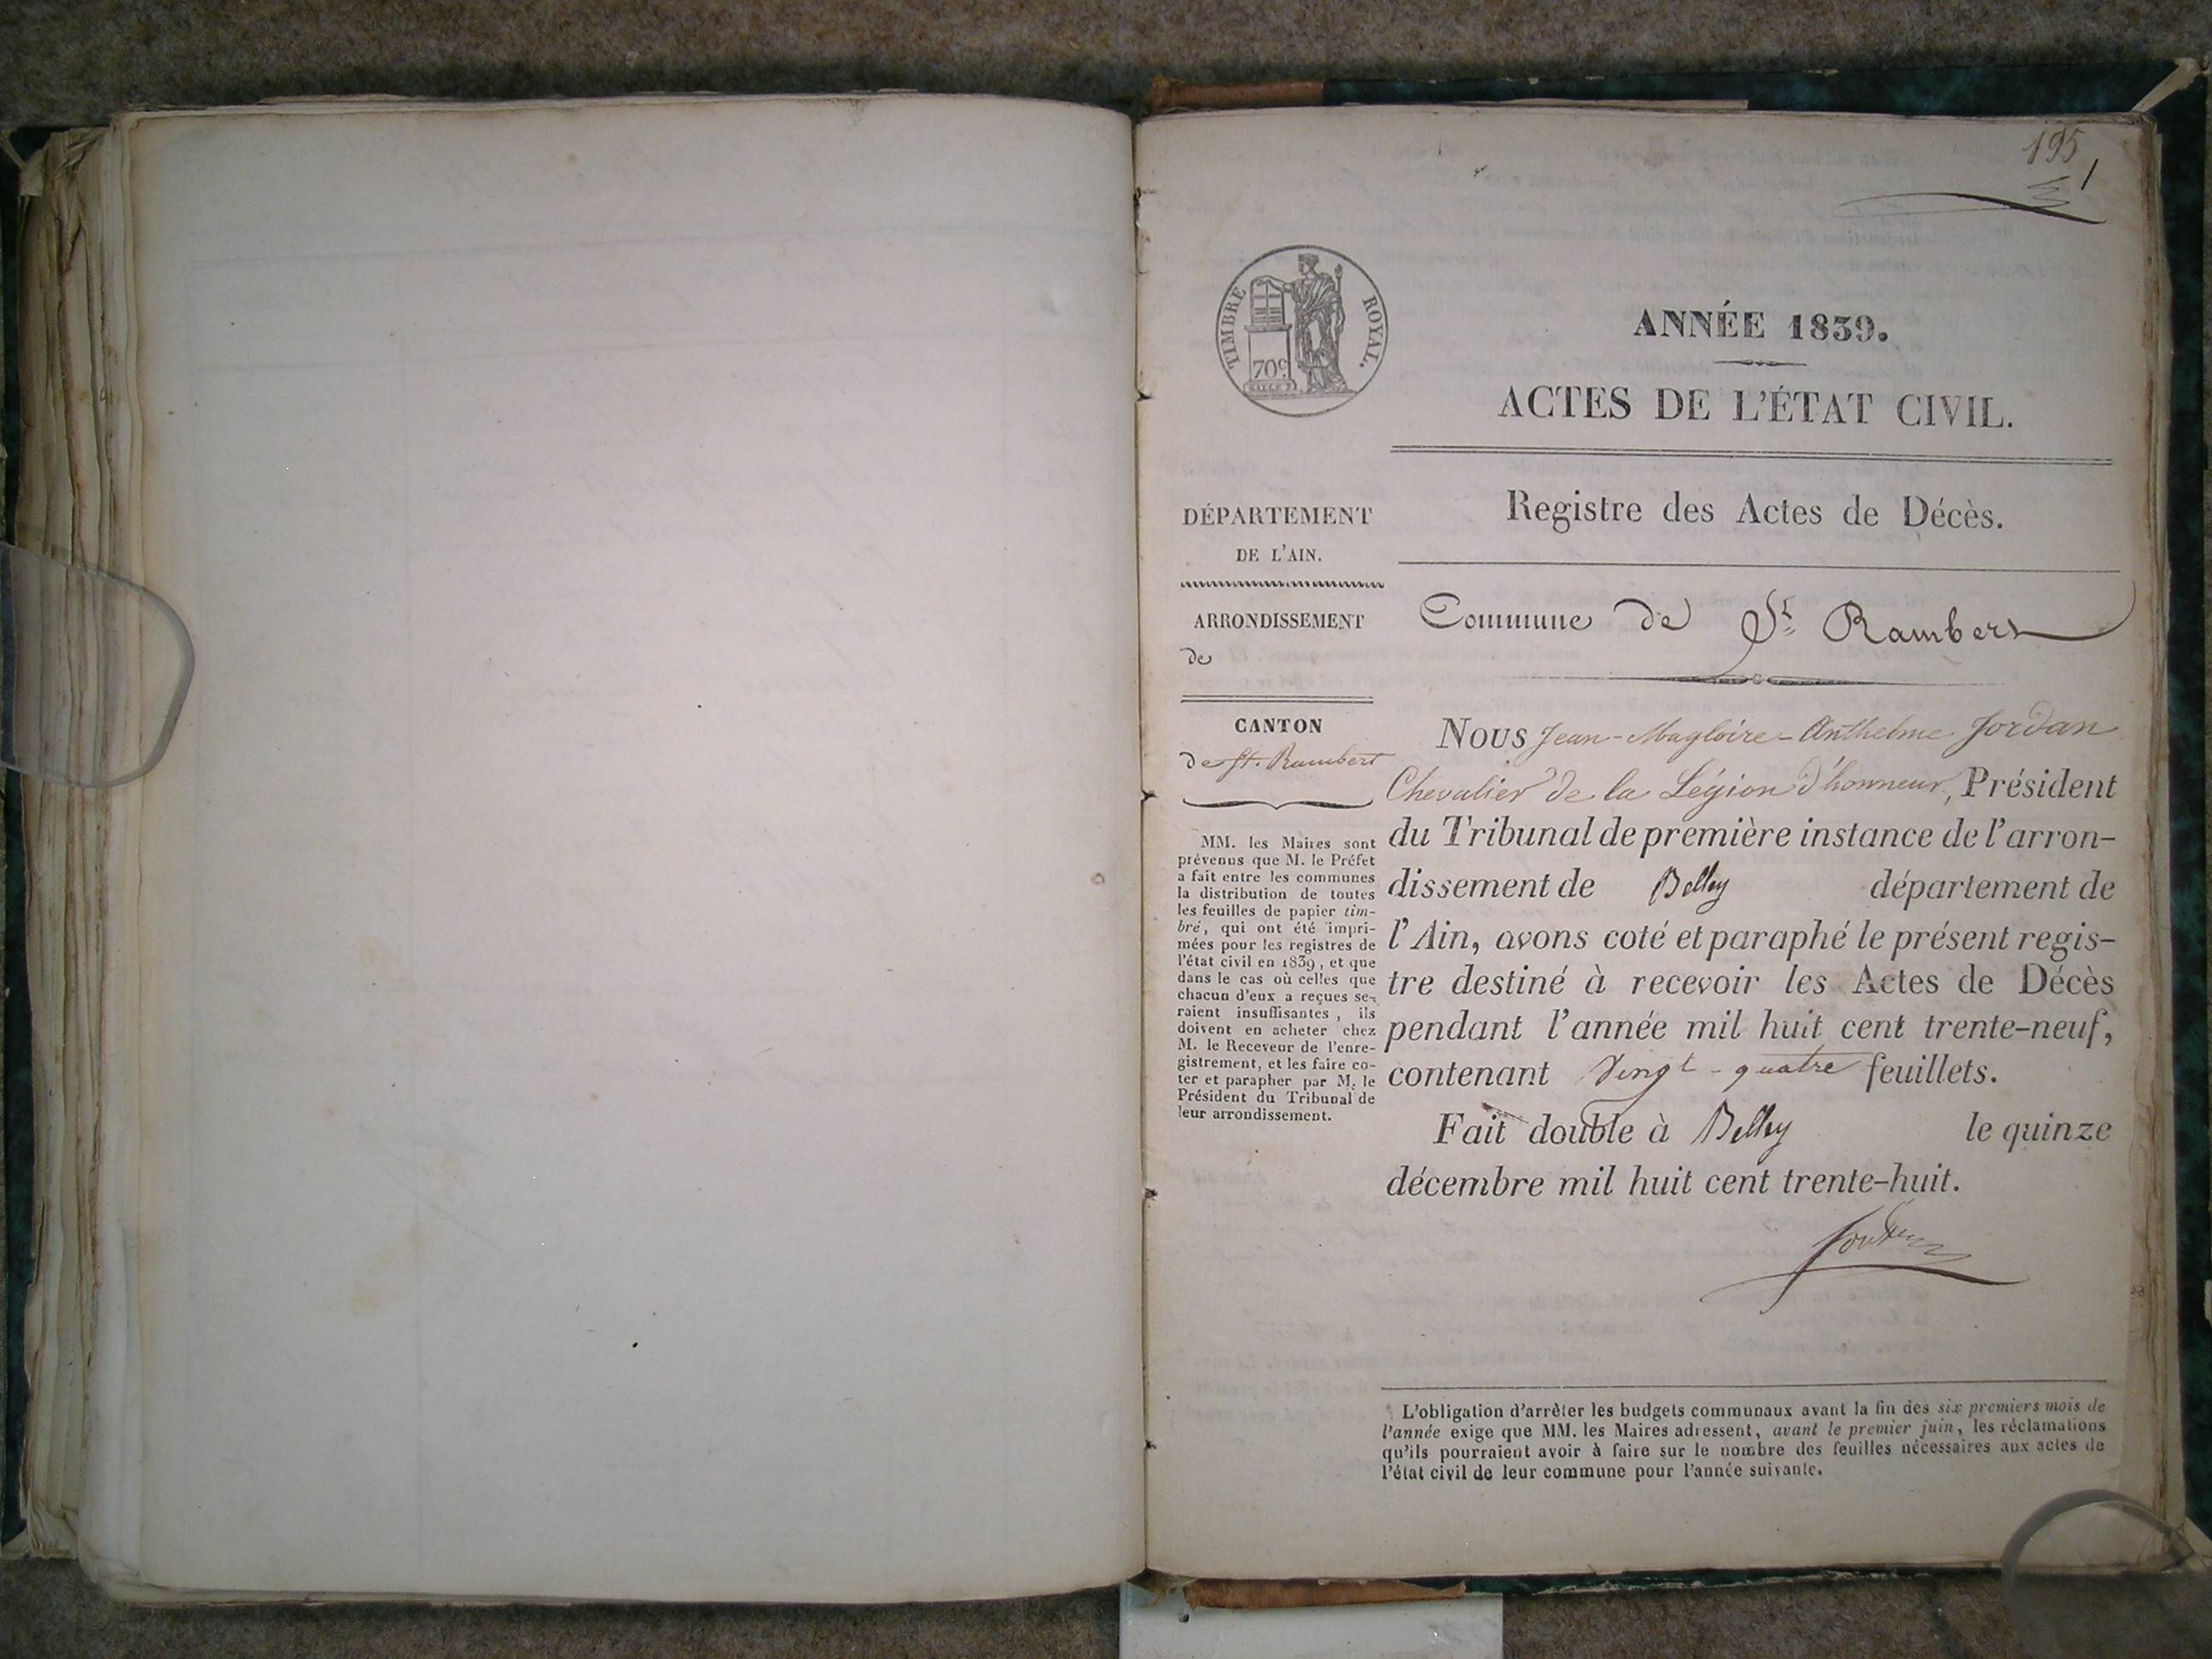 195
1
TIMBRE ROYAL.
70c.
ANNÉE 1839.
ACTES DE L'ÉTAT CIVIL.
Registre des Actes de Décès.
DÉPARTEMENT
DE L'AIN.
ARRONDISSEMENT
de
CANTON
de St. Rambert
MM. les Maires sont
prévenus que M. le Préfet
a fait entre les communes
la distribution de toutes
les feuilles de papier tim-
bré, qui ont été impri-
mées pour les registres de
l'état civil en 1839, et que
dans le cas où celles que
chacun d'eux a reçues se-
raient insuffisantes, ils
doivent en acheter chez
M. le Receveur de l'enre-
gistrement, et les faire co-
ter et parapher par M. le
Président du Tribunal de
leur arrondissement.
Commune de St. Rambert
Nous Jean-Magloire-Anthelme Jordan
Chevalier de la Légion d'honneur, Président
du Tribunal de première instance de l'arron-
dissement de Belley département de
l'Ain, avons coté et paraphé le présent regis-
tre destiné à recevoir les Actes de Décès
pendant l'année mil huit cent trente-neuf,
contenant Vingt-quatre feuillets.
Fait double à Belley le quinze
décembre mil huit cent trente-huit.
Jordan
L'obligation d'arrêter les budgets communaux avant la fin des six premiers mois de
l'année exige que MM. les Maires adressent, avant le premier juin, les réclamations
qu'ils pourraient avoir à faire sur le nombre des feuilles nécessaires aux actes de
l'état civil de leur commune pour l'année suivante.